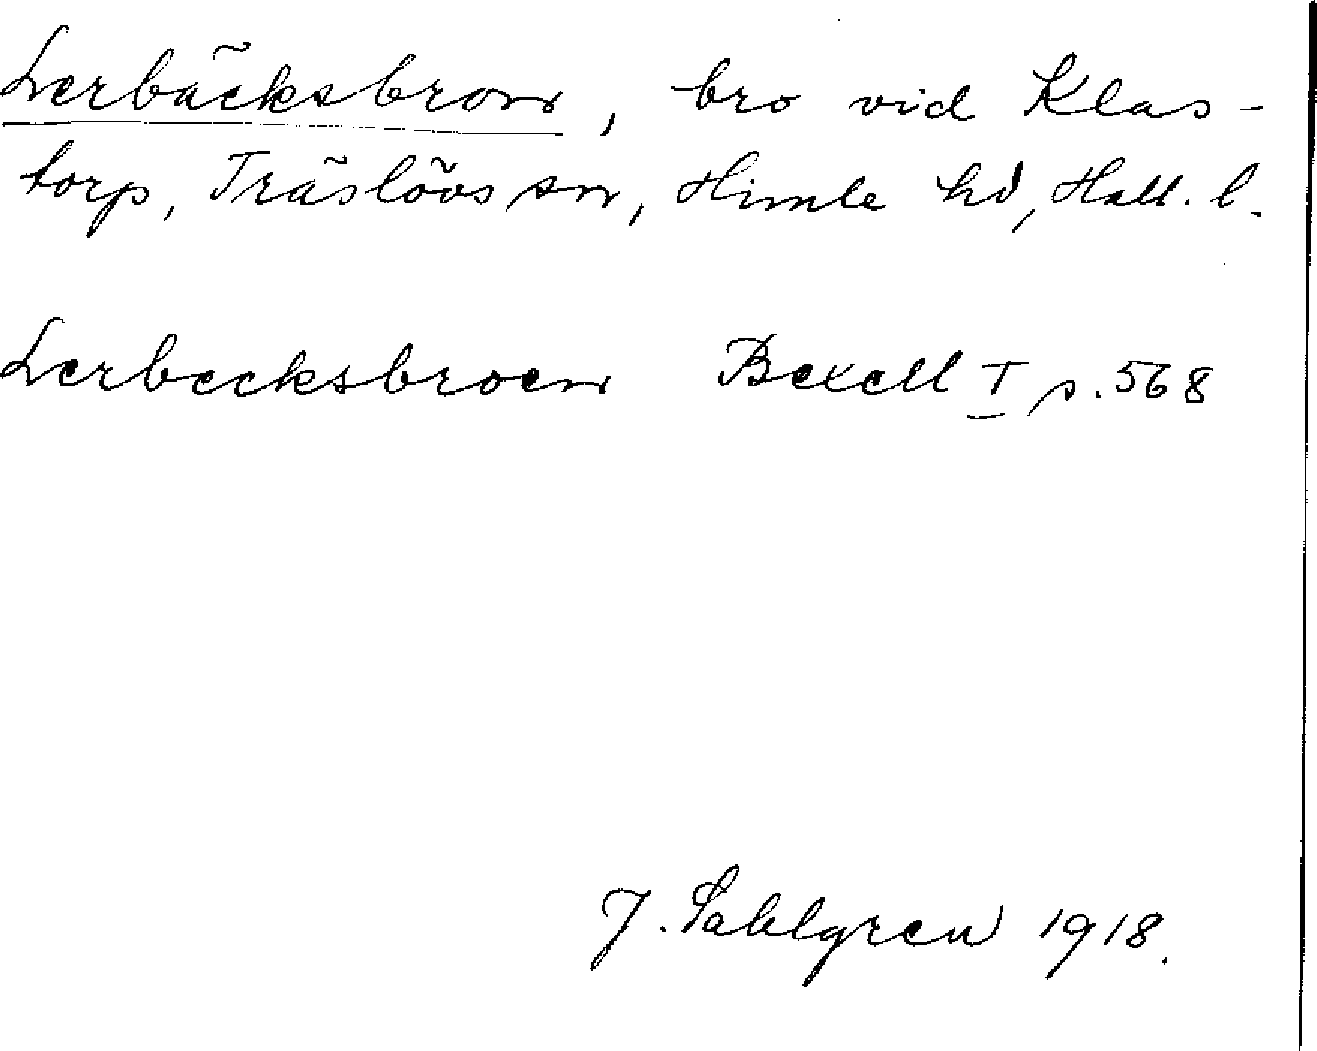 Lerbäcksbron, bro vid Klas-
torp, Träslövs sn, Himle hd, Hall. l.
Lerbecksbroen Bexell I s. 568
J. Sahlgren 1918.